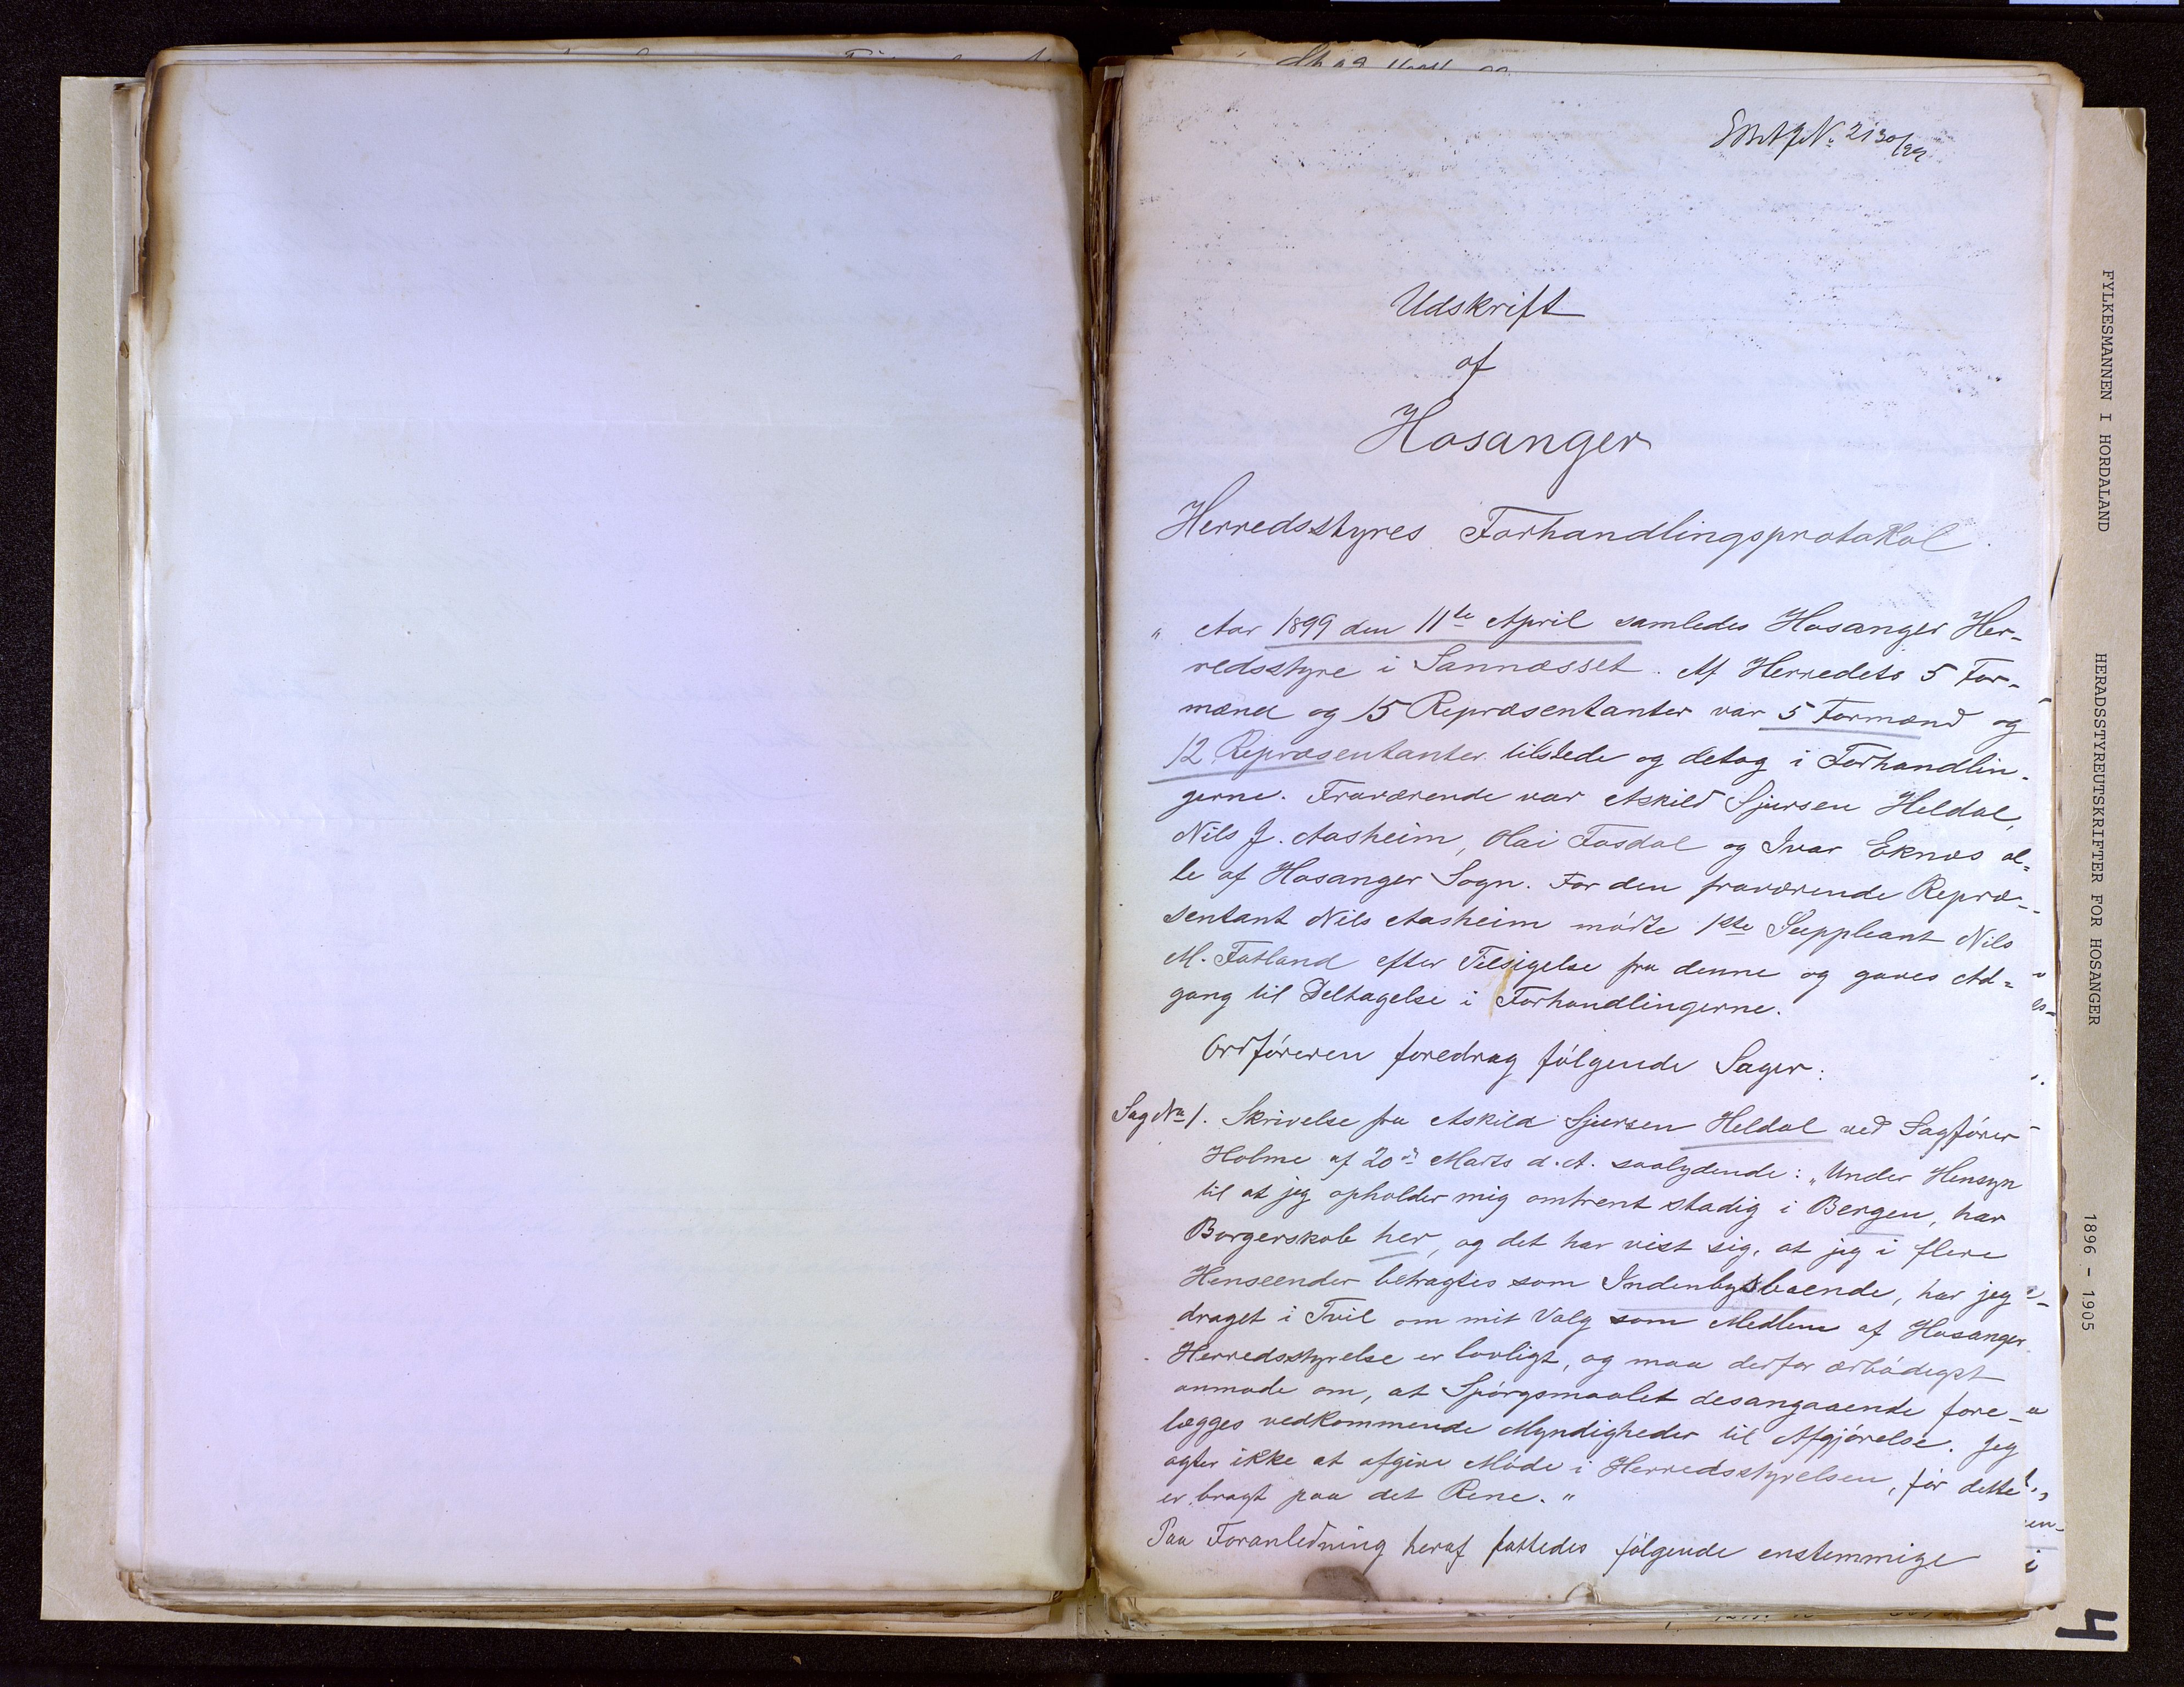 SBA JN. 2130/99
Udskrift
af
Hosanger
Herredsstyres Forhandlingsprotokol.
" Aar 1899 den 11te April samledes Hosanger Her-
redsstyre i Sannæsset. Af Herredets 5 For-
mænd og 15 Repræsentanter var 5 Formænd og
12 Repræsentanter tilstede og detog i Forhandlin-
gerne. Fraværende var Askild Sjursen Heldal,
Nils J. Aasheim, Olai Fosdal og Ivar Eknæs al-
le af Hosanger Sogn. For den fraværende Repræ-
sentant Nils Aasheim mødte 1ste Suppleant Nils
M. Fatland efter Tilsigelse fra denne og gaves Ad-
gang til Deltagelse i Forhandlingerne.
Ordføreren foredrag følgende Sager:
Sag No 1. Skrivelse fra Askild Sjursen Heldal ved Sagfører
Holme af 20de Marts d. A. saalydende: „Under Hensyn
til at jeg opholder mig omtrent stadig i Bergen, har
Borgerskab her, og det har vist sig, at jeg i flere
Henseender betragtes som Indenbysboende, har jeg
draget i Tvil om mit Valg som Medlem af Hosanger
Herredsstyrelse er lovligt, og maa derfor ærbødigst
anmode om, at Spørgsmaalet desangaaende fore-
lægges vedkommende Myndigheder til Afgjørelse. Jeg
agter ikke at afgive Møde i Herredsstyrelsen, før dette
er bragt paa det Rene."
Paa Foranledning heraf fattedes følgende enstemmige
FYLKESMANNEN I HORDALAND
HERADSSTYREUTSKRIFTER FOR HOSANGER
1896 - 1905
4